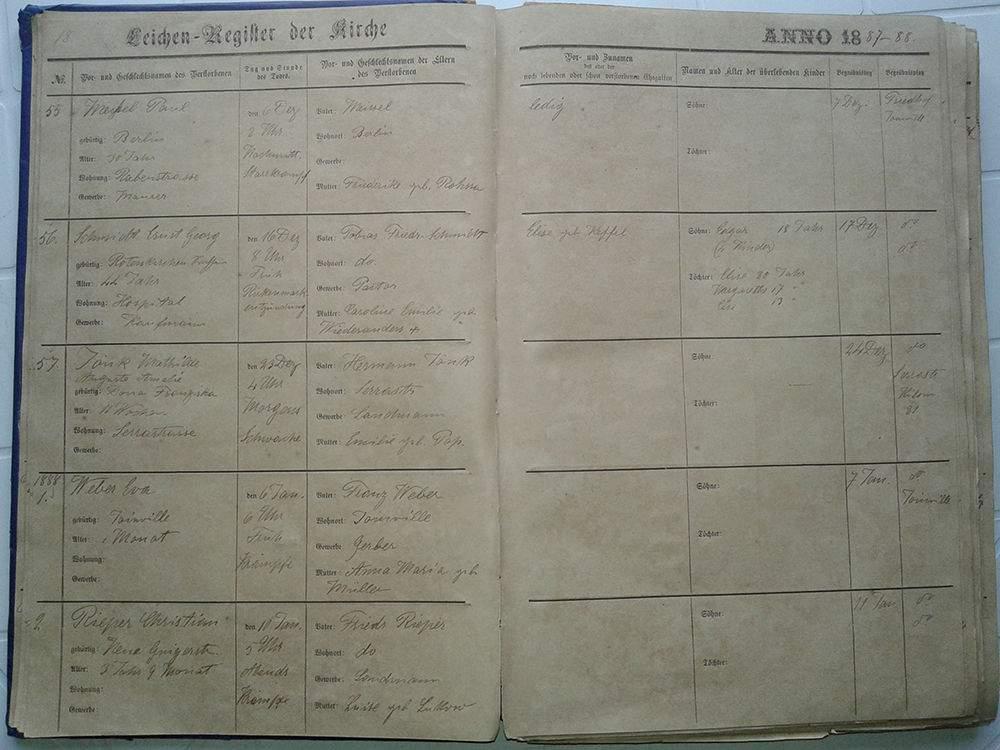 18
Leichen-Register der Kirche
№.
Vor- und Geschlechtsnamen des Verstorbenen
Tag und Stunde
des Todes.
Vor- und Geschlechtsnamen der Eltern
des Verstorbenen
55
Paul
gebürtig: Berlin
Alter: 30 Jahr
Wohnung: Rabenstrasse
Gewerbe: Maurer
den 6 Dez
2 Uhr
Nachmitt.
Starrkrampf
Vater:
Wohnort: Berlin
Gewerbe:
Mutter: Friederike geb.
56.
Schmidt Ernst Georg
gebürtig: Rotenkirchen
Alter: 44 Jahr
Wohnung: Hospital
Gewerbe: Kaufmann
den 16 Dez
8 Uhr
Früh
Rückenmark
entzündung
Vater: Tobias Friedr. Schmidt
Wohnort: do
Gewerbe: Pastor
Mutter: Caroline Emilie geb.
Wiederanders +
57.
Mathilde
Auguste Amalie
gebürtig: Dona Franziska
Alter: Wochen
Wohnung: Serrastrasse
Gewerbe:
den 23 Dez
4 Uhr
Morgens
Schwäche
Vater: Hermann
Wohnort: Serrastr
Gewerbe: Landmann
Mutter: Emilie geb. Pap.
1888
1.
Weber Eva
gebürtig: Joinville
Alter: 1 Monat
Wohnung:
Gewerbe:
den 6 Jan.
6 Uhr
Früh
Krämpfe
Vater: Franz Weber
Wohnort: Joinville
Gewerbe Gerber
Mutter: Anna Maria geb
Müller
2.
Rieper Christian
gebürtig:
Alter: 3 Jahr 9 Monat
Wohnung:
Gewerbe:
den 10 Jan.
5 Uhr
Abends
Krämpfe
Vater: Friedr Rieper
Wohnort: do
Gewerbe: Landmann
Mutter: Luise geb Lützow
ANNO 1887-88.
Vor- und Zunamen
des oder der
noch lebenden oder schon verstorbenen Ehegatten
Namen und Alter der überlebenden Kinder
Begräbnißtag
Begräbnißplatz
ledig
Söhne:
Töchter:
7 Dez.
Friedhof
Joinville
Elise geb Keppel
Söhne: Edgar 18 Jahr
Töchter: Elise 20 Jahr
Margareth 17 "
13 "
17 Dez
do
do
Söhne:
Töchter:
24 Dez
do
Serrastr
81
Söhne:
Töchter:
7 Jan.
do
Joinville
Söhne:
Töchter:
11 Jan.
do
do